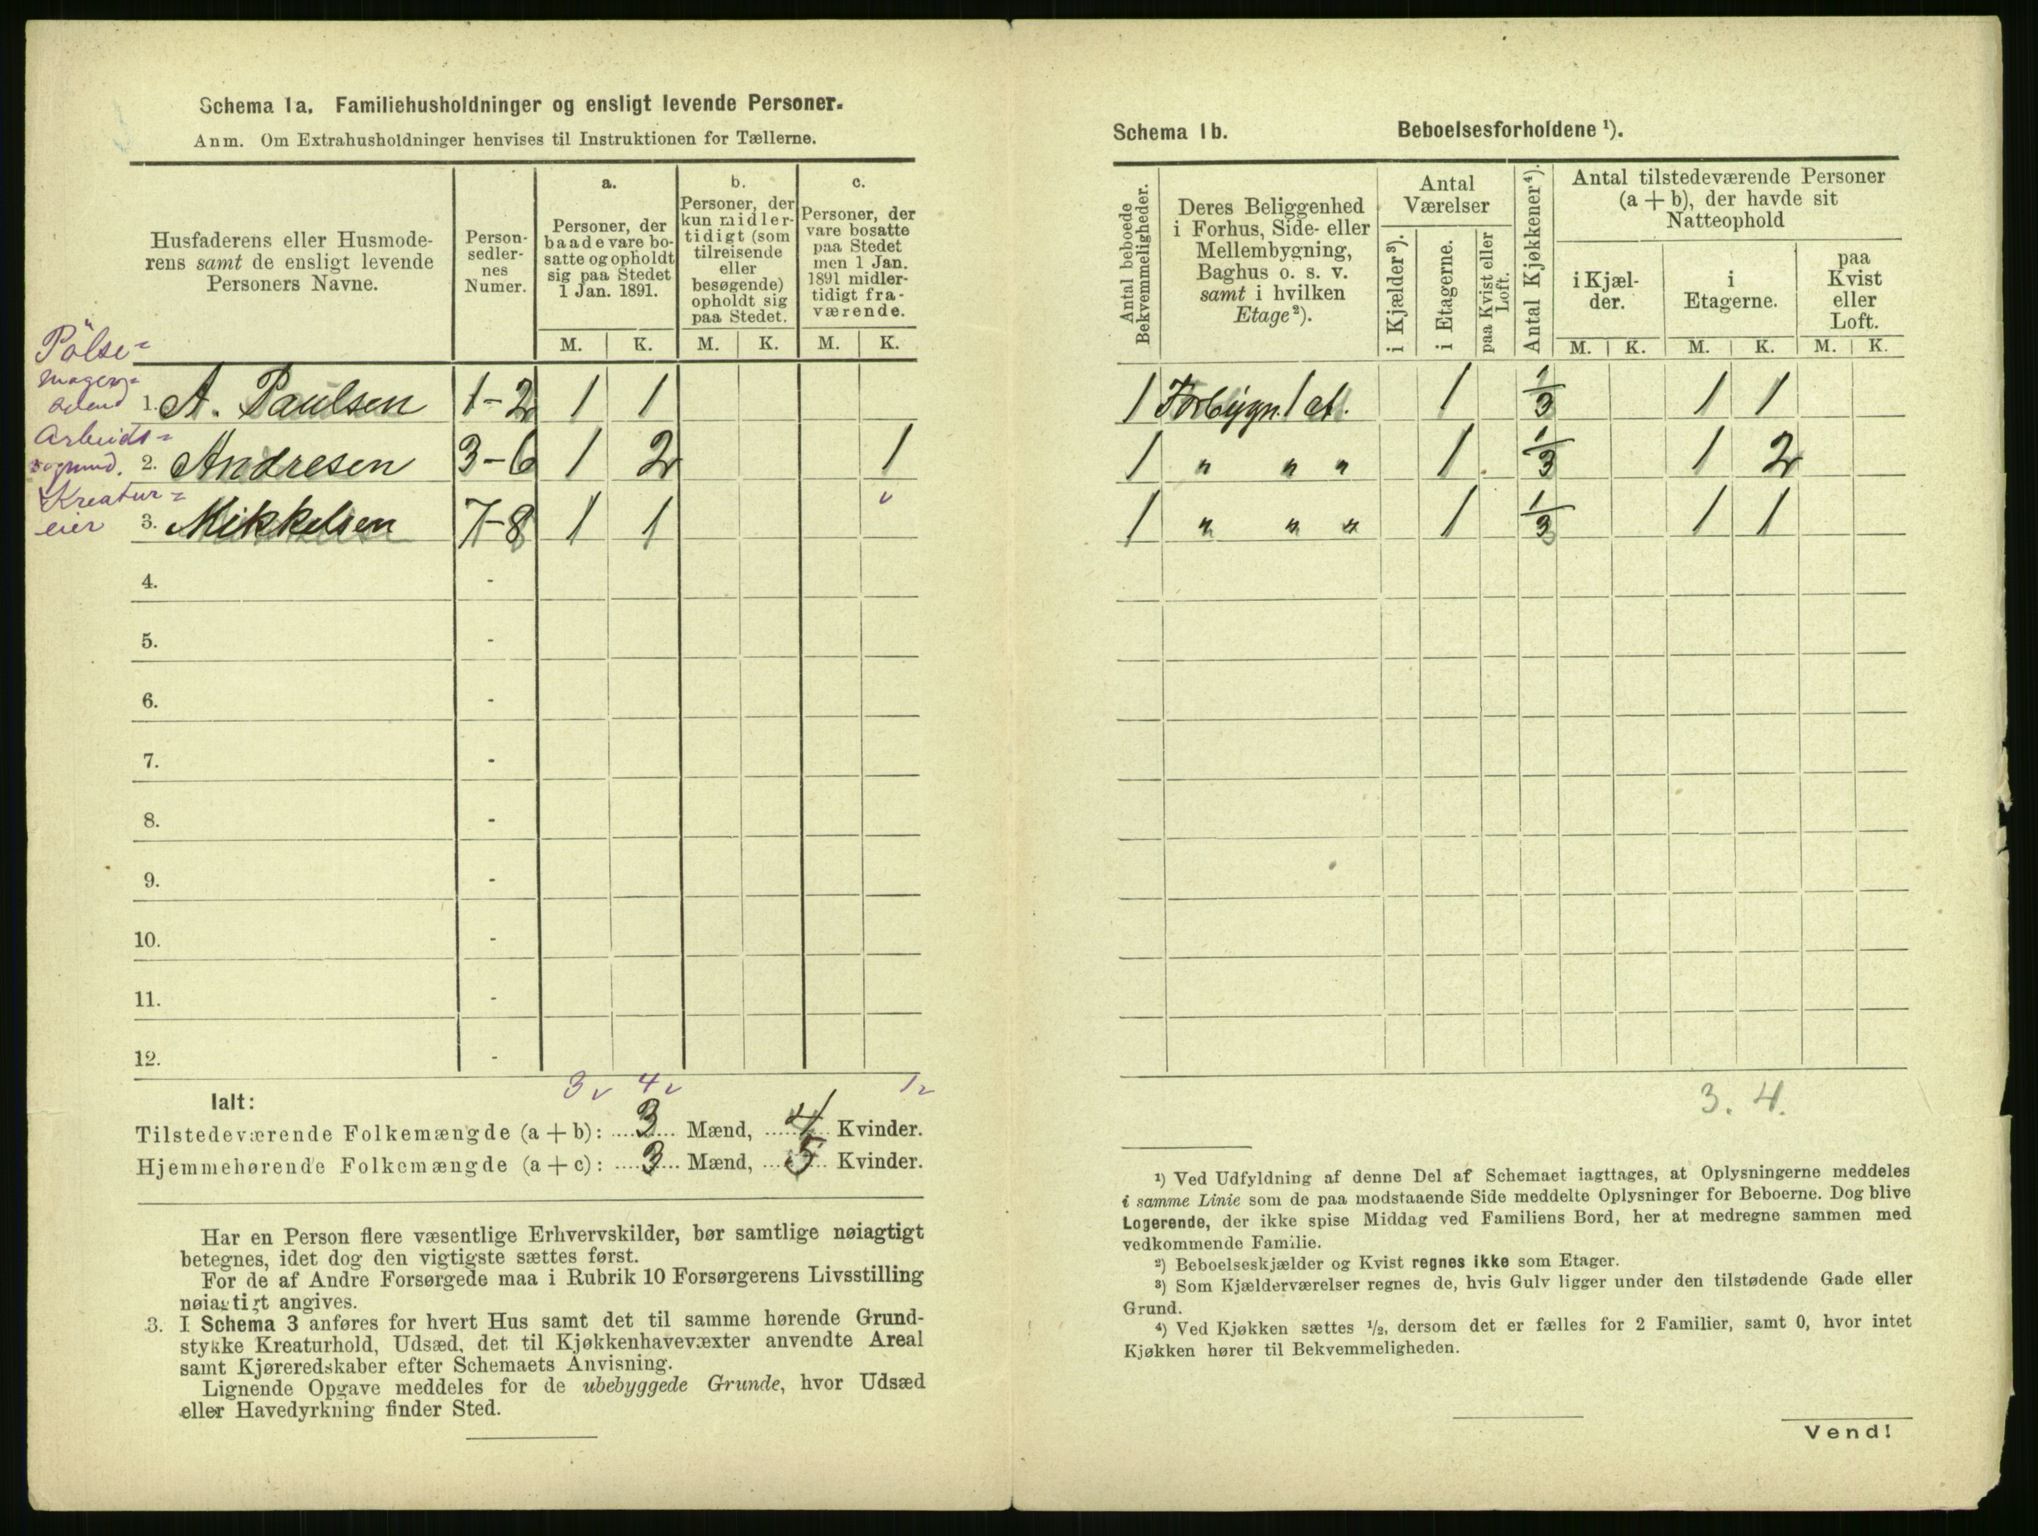 Schema 1a. Familiehusholdninger og ensligt levende Personer.
Anm. Om Extrahusholdninger henvises til Instruktionen for Tællerne.
Husfaderens eller Husmode-
rens samt de ensligt levende
Personers Navne.
Person-
sedler-
nes
Numer.
a.
Personer, der
baade vare bo-
satte og opholdt
sig paa Stedet
1 Jan. 1891.
b.
Personer, der
kun midler-
tidigt (som
tilreisende
eller
besøgende)
opholdt sig
paa Stedet.
c.
Personer, der
vare bosatte
paa Stedet
men 1 Jan.
1891 midler-
tidigt fra-
værende.
M. K. M. K. M. K.
Pölse-
1. A. Paulsen 1-2 1 1
Arbeids-
2. Andresen 3-6 1 2 1
Kreatur-
eier 3. Mikkelsen 7-8 1 1
4. -
5. -
6. -
7. -
8. -
9. -
10. -
11. -
12. -
3 4 1
Ialt:
Tilstedeværende Folkemængde (a + b): 3 Mænd, 4 Kvinder.
Hjemmehørende Folkemængde (a + c): 3 Mænd, 5 Kvinder.
Har en Person flere væsentlige Erhvervskilder, bør samtlige nøiagtigt
betegnes, idet dog den vigtigste sættes først.
For de af Andre Forsørgede maa i Rubrik 10 Forsørgerens Livsstilling
nøiagtigt angives.
3. I Schema 3 anføres for hvert Hus samt det til samme hørende Grund-
stykke Kreaturhold, Udsæd, det til Kjøkkenhavevæxter anvendte Areal
samt Kjøreredskaber efter Schemaets Anvisning.
Lignende Opgave meddeles for de ubebyggede Grunde, hvor Udsæd
eller Havedyrkning finder Sted.
Schema 1b. Beboelsesforholdene ¹).
Antal beboede
Bekvemmeligheder.
Deres Beliggenhed
i Forhus, Side- eller
Mellembygning,
Baghus o. s. v.
samt i hvilken
Etage²).
Antal
Værelser
i Kjælder³).
i Etagerne.
paa Kvist eller
Loft.
Antal Kjøkkener⁴).
Antal tilstedeværende Personer
(a + b), der havde sit
Natteophold
i Kjæl-
der.
i
Etagerne.
paa
Kvist
eller
Loft.
M. K. M. K. M. K.
1 Forbygn. 1 et. 1 1/3 1 1
1 " " " 1 1/3 1 2
1 " " " 1 1/3 1 1
3. 4.
¹) Ved Udfyldning af denne Del af Schemaet iagttages, at Oplysningerne meddeles
i samme Linie som de paa modstaaende Side meddelte Oplysninger for Beboerne. Dog blive
Logerende, der ikke spise Middag ved Familiens Bord, her at medregne sammen med
vedkommende Familie.
²) Beboelseskjælder og Kvist regnes ikke som Etager.
³) Som Kjælderværelser regnes de, hvis Gulv ligger under den tilstødende Gade eller
Grund.
⁴) Ved Kjøkken sættes ½, dersom det er fælles for 2 Familier, samt 0, hvor intet
Kjøkken hører til Bekvemmeligheden.
Vend!